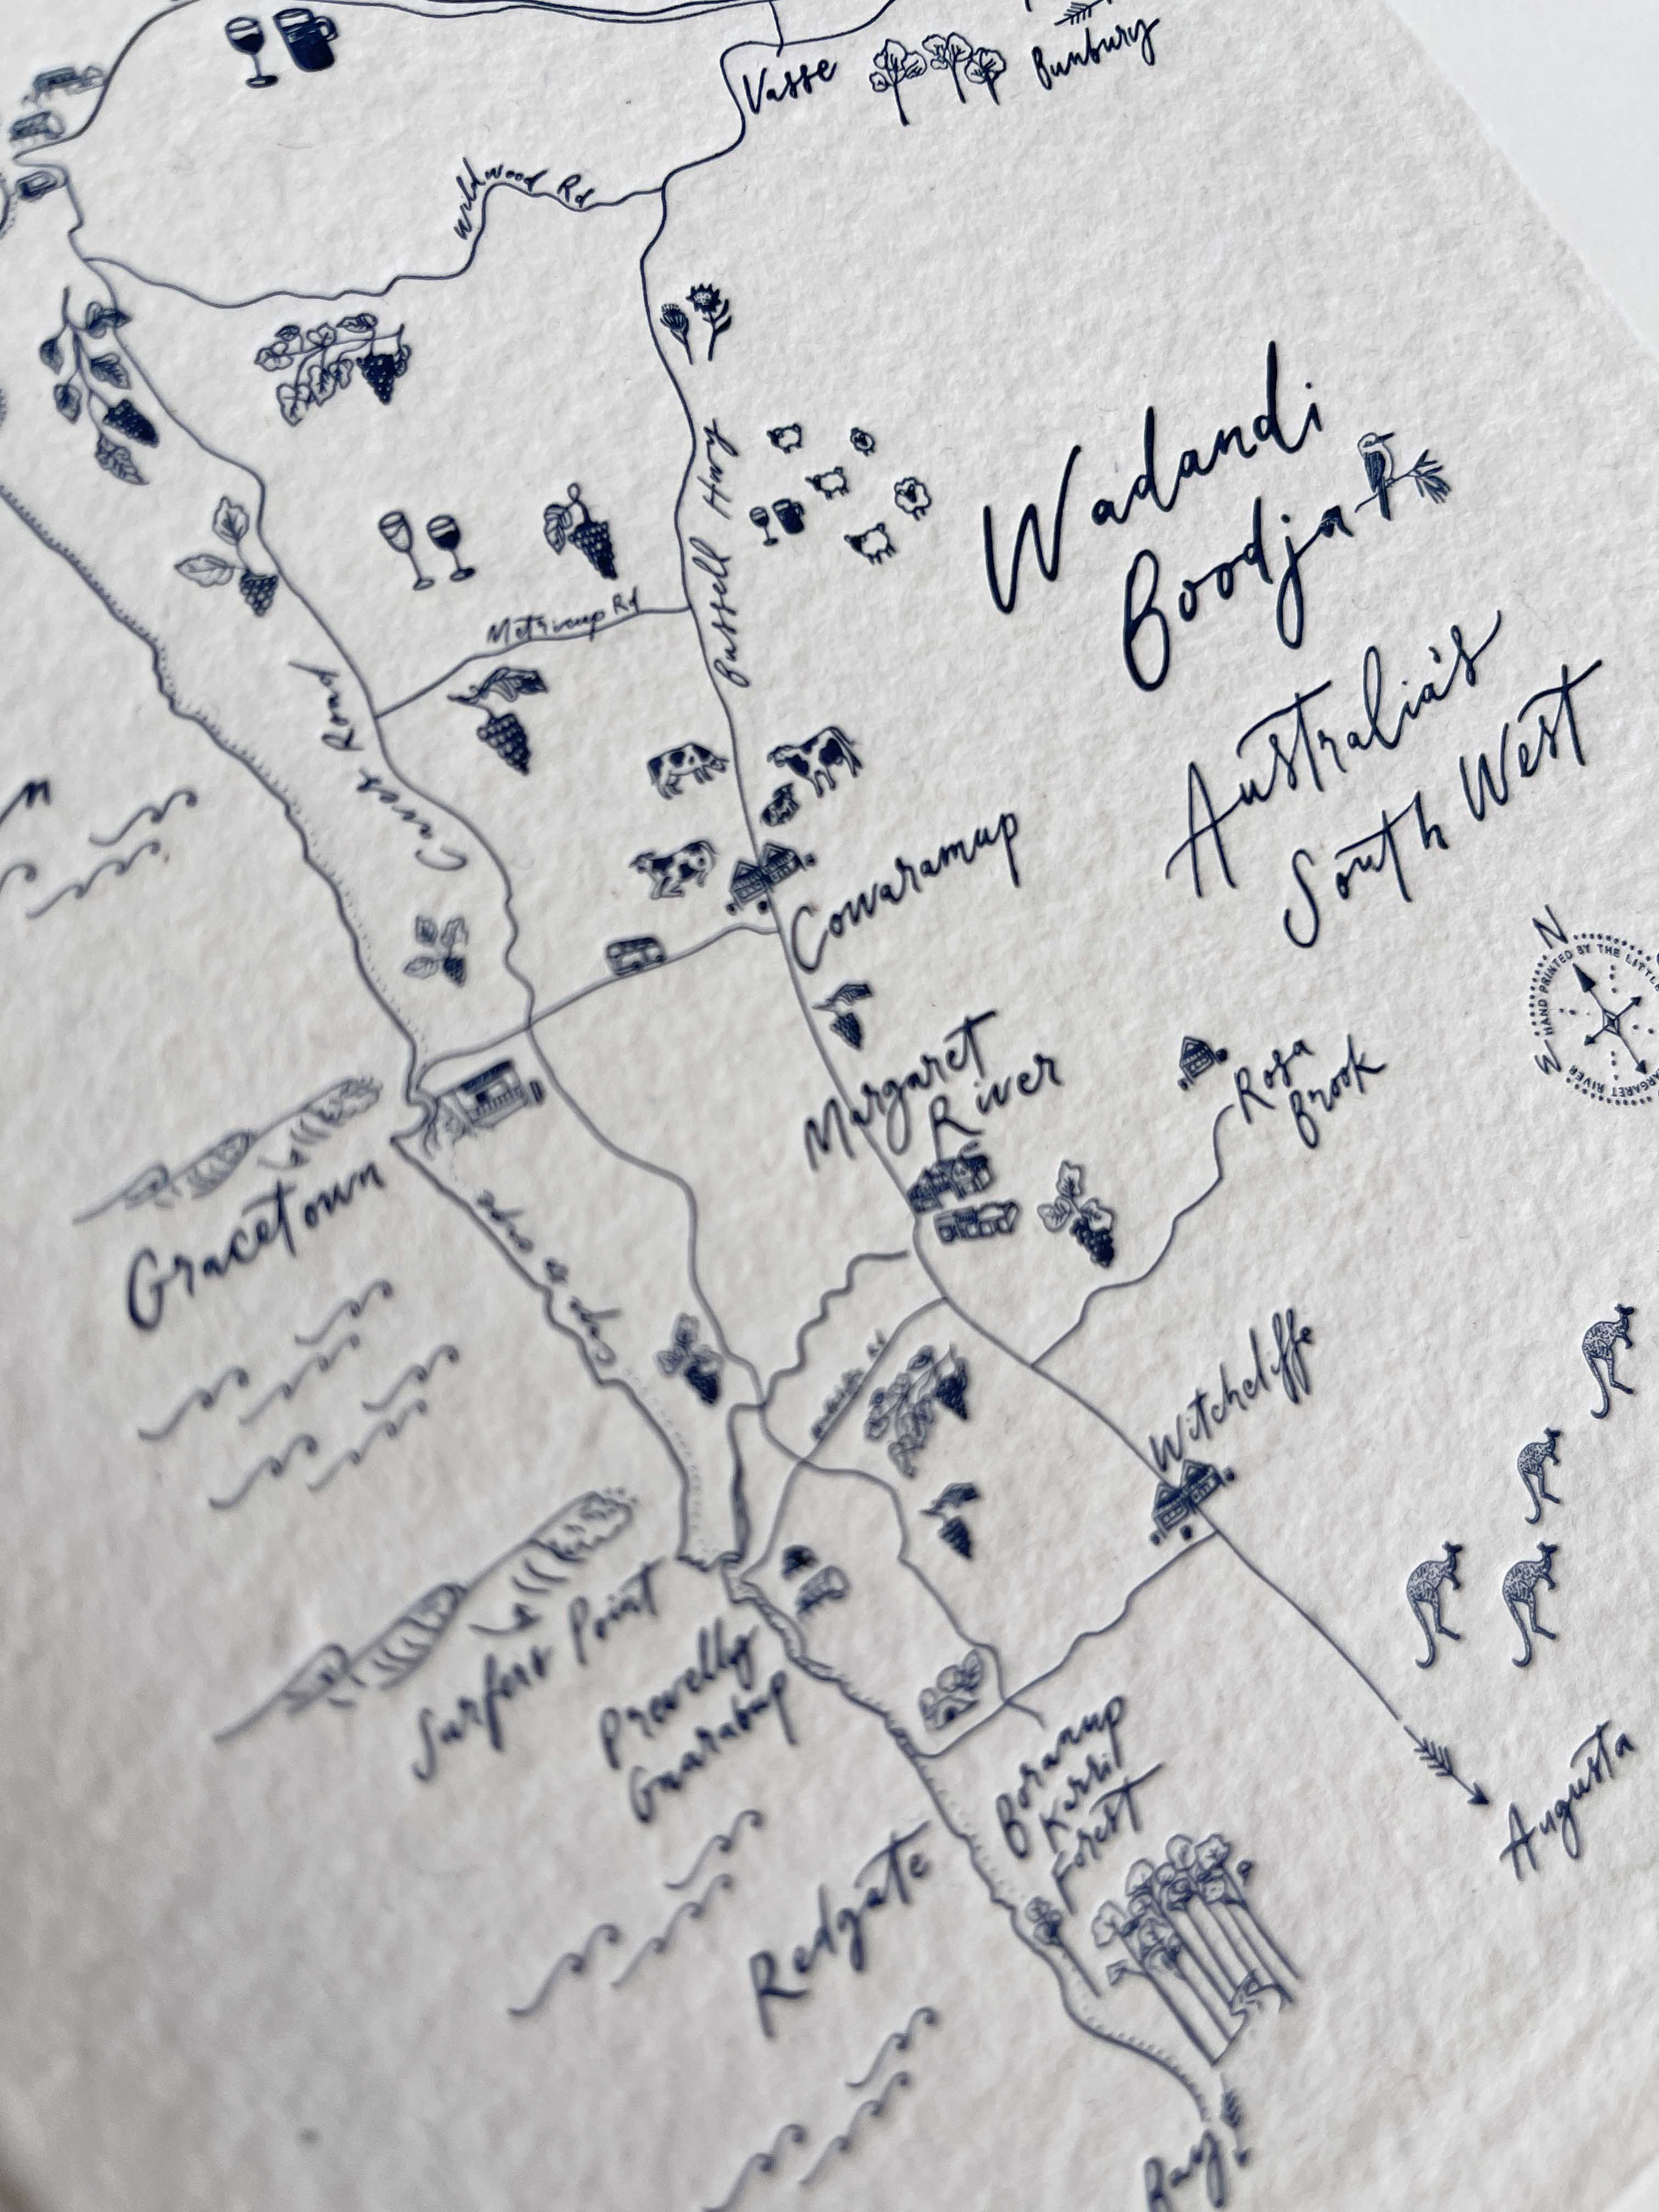 Vasse
Bunbury
Wildwood Rd
Bussell Hwy
Metricup Rd
Caves Road
Wadandi
Boodja
Australia's
South West
Cowaramup
N
W
HAND PRINTED BY THE LITTLE
MARGARET RIVER
Margaret
River
Rosa
Brook
Gracetown
Cape to Cape
Witchcliffe
Surfers Point
Prevelly
Gnarabup
Boranup
Karri
Forest
Redgate
Augusta
Bay